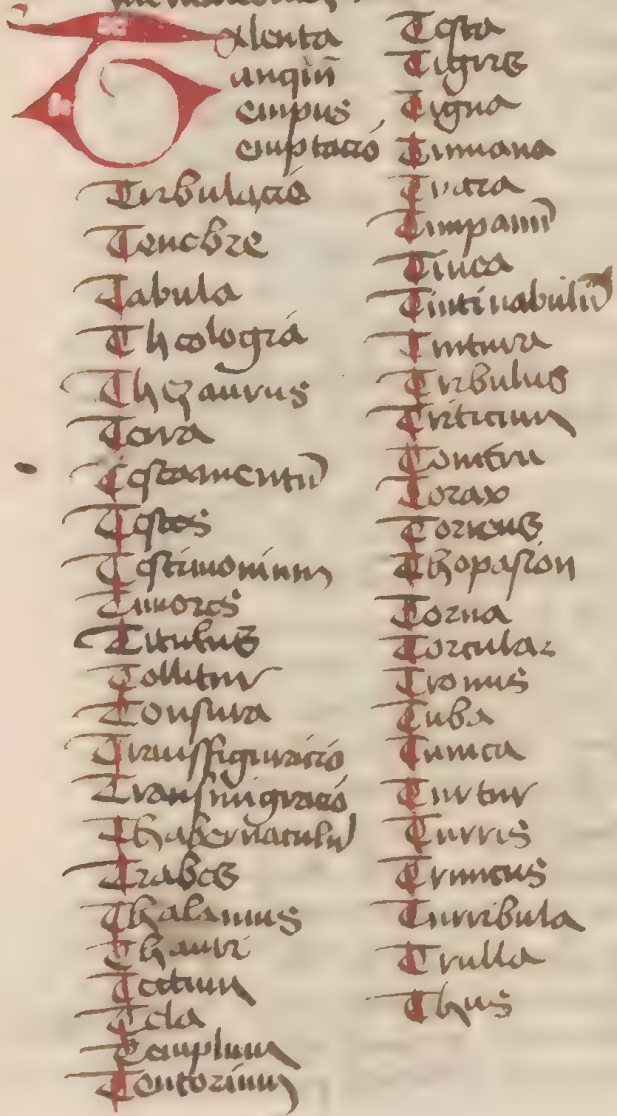 Talenta
Tanqiñ
Tempus
Temptacio
Tribulacio
Tenebre
Tabula
Theologia
Thezaurus
Terra
Testamentu
Testes
Testimonium
Timores
Titulus
Tollitur
Tonsura
Transfiguracio
Transmigracio
Thabernaculu
Trabes
Thalamus
Thauri
Tectum
Tela
Templum
Tentorium
Testa
Tigris
Tigna
Timiana
Tiara
Timpanu
Tinea
Tintinabulu
Tinctura
Tribulus
Triticum
Tonitru
Torax
Thopasion
Torcular
Tronus
Tuba
Tunica
Turtur
Turris
Truncus
Turribula
Trulla
Thus